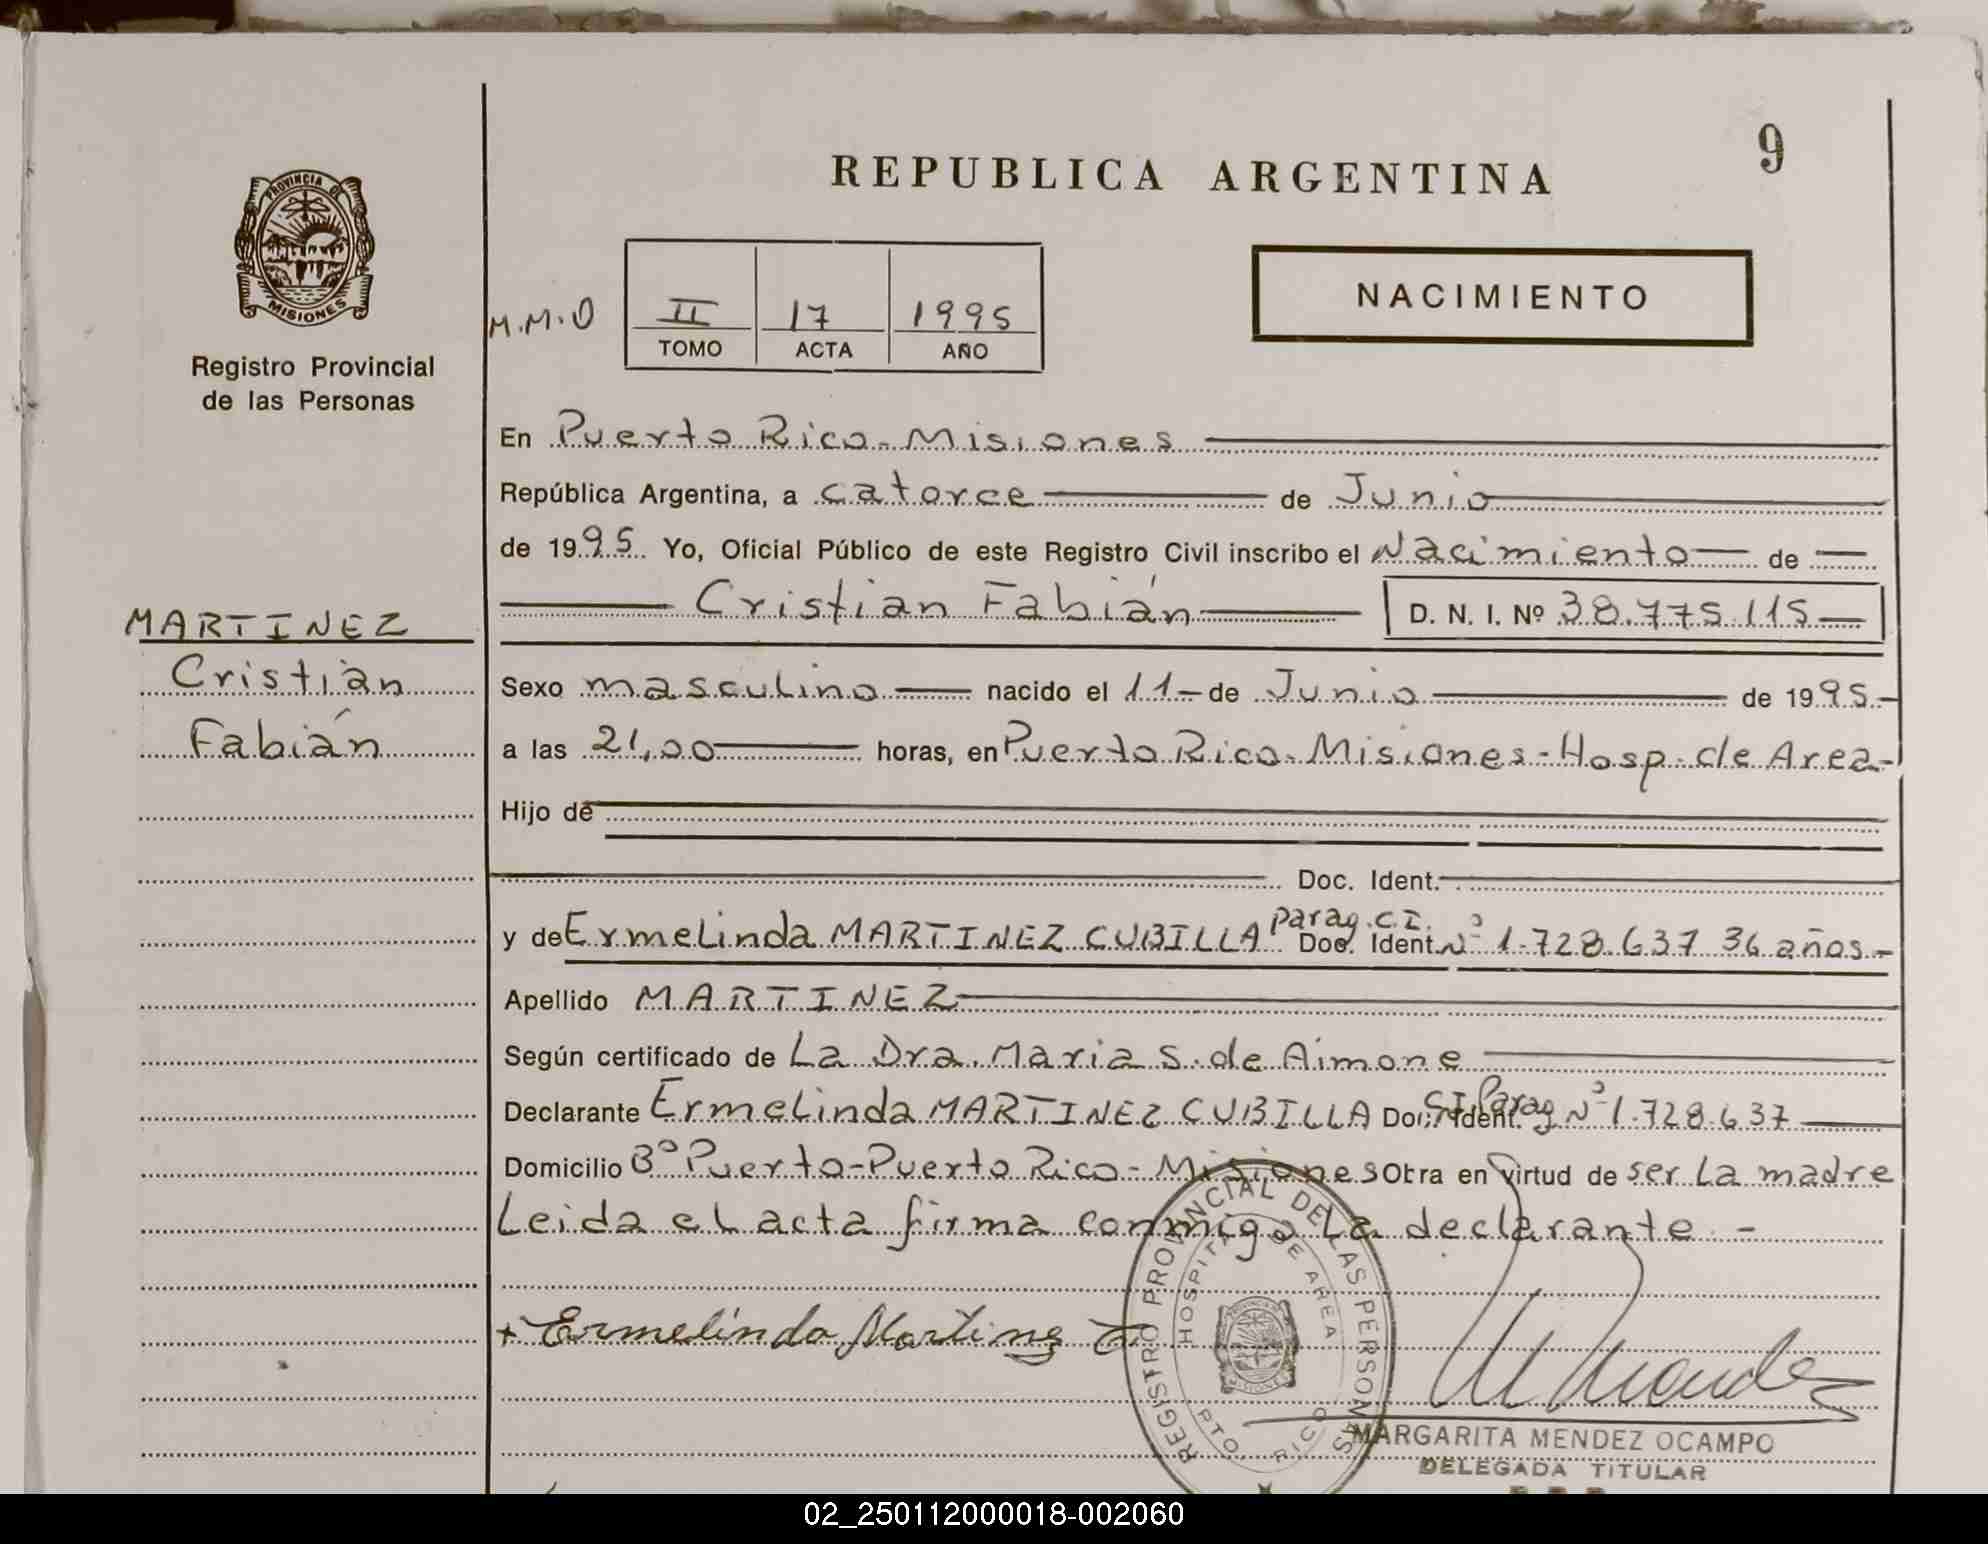 REPUBLICA ARGENTINA
9
PROVINCIA DE
MISIONES
Registro Provincial
de las Personas
M.M.O
II 17 1995
TOMO ACTA AÑO
NACIMIENTO
En Puerto Rico - Misiones
República Argentina, a catorce de Junio
de 1995 Yo, Oficial Público de este Registro Civil inscribo el Nacimiento de
Cristian Fabián D. N. I. Nº 38.775.115
MARTINEZ
Cristian
Fabián
Sexo masculino nacido el 11 de Junio de 1995.-
a las 21,00 horas, en Puerto Rico - Misiones - Hosp. de Area -
Hijo de
Doc. Ident.
y de Ermelinda MARTINEZ CUBILLA Parag. C.I. Doc. Ident. Nº 1.728.637 36 años.-
Apellido MARTINEZ
Según certificado de La Dra. Maria S. de Aimone
Declarante Ermelinda MARTINEZ CUBILLA Doc. Ident. C.I. Parag Nº 1.728.637
Domicilio Bº Puerto - Puerto Rico - Misiones Obra en virtud de ser La madre
Leida el acta firma conmigo La declarante. -
+ Ermelinda Martinez C
REGISTRO PROVINCIAL DE LAS PERSONAS
HOSPITAL DE AREA
PTO. RICO
MISIONES
M Mendez
MARGARITA MENDEZ OCAMPO
DELEGADA TITULAR
02_250112000018-002060